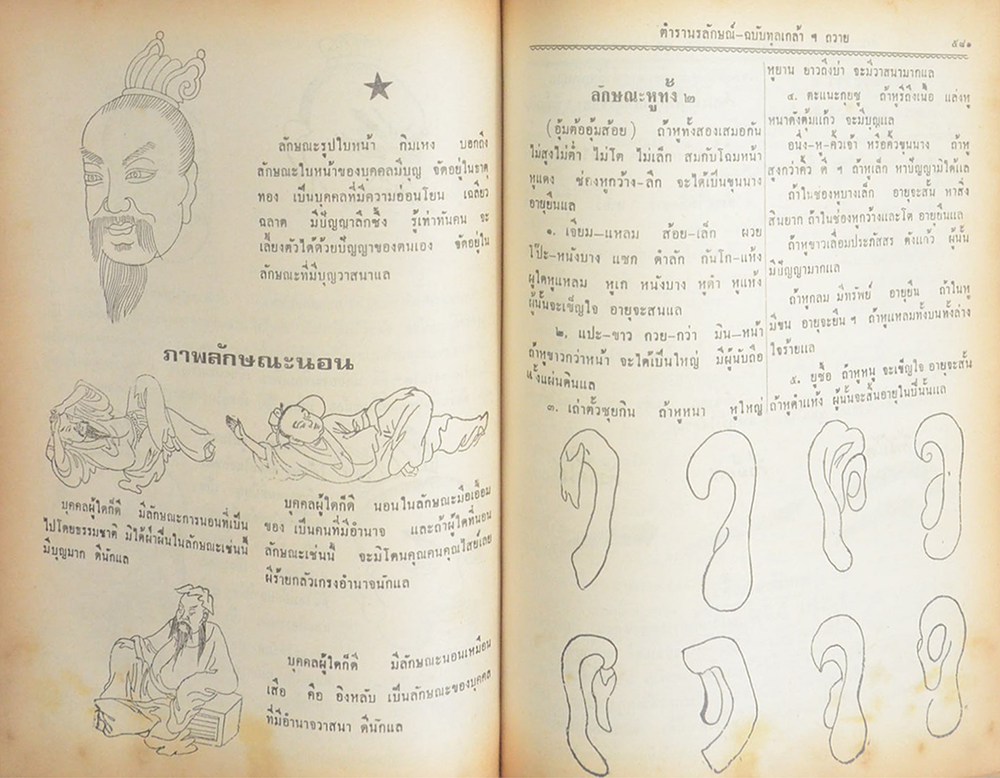 ลักษณะรูปใบหน้า กิมเหง บอกถึง
ลักษณะใบหน้าของบุคคลมีบุญ จัดอยู่ในธาตุ
ทอง เป็นบุคคลที่มีความอ่อนโยน เฉลียว
ฉลาด มีปัญญาลึกซึ้ง รู้เท่าทันคน จะ
เลี้ยงตัวได้ด้วยปัญญาของตนเอง จัดอยู่ใน
ลักษณะที่มีบุญวาสนาแล
ภาพลักษณะนอน
บุคคลผู้ใดก็ดี มีลักษณะการนอนที่เป็น
ไปโดยธรรมชาติ มิได้ฝ่าฝืนในลักษณะเช่นนี้
มีบุญมาก ดีนักแล
บุคคลผู้ใดก็ดี นอนในลักษณะมือเอื้อม
ของ เป็นคนที่มีอำนาจ และถ้าผู้ใดที่นอน
ลักษณะเช่นนี้ จะมิโดนคุณคนคุณไสย์เลย
ผีร้ายกลัวเกรงอำนาจนักแล
บุคคลผู้ใดก็ดี มีลักษณะนอนเหมือน
เสือ คือ อิงหลับ เป็นลักษณะของบุคคล
ที่มีอำนาจวาสนา ดีนักแล
ตำรานรลักษณ์-ฉบับทูลเกล้า ฯ ถวาย
๕๘๑
ลักษณะหูทั้ง ๒
(อุ้มต้ออุ้มส้อย) ถ้าหูทั้งสองเสมอกัน
ไม่สูงไม่ต่ำ ไม่โต ไม่เล็ก สมกับโฉมหน้า
หูแดง ช่องหูกว้าง-ลึก จะได้เป็นขุนนาง
อายุยืนแล
๑. เจียม—แหลม ส้อย-เล็ก ผวย
โป๊ะ-หนังบาง แซก ดำลัก กันโก-แห้ง
ผู้ใดหูแหลม หูเก หนังบาง หูดำ หูแห้ง
ผู้นั้นจะเข็ญใจ อายุจะสั้นแล
๒. แปะ-ขาว กวย-กว่า มิน—หน้า
ถ้าหูขาวกว่าหน้า จะได้เป็นใหญ่ มีผู้นับถือ
ทั้งแผ่นดินแล
๓. เถ่าตั้วซุยกิน ถ้าหูหนา หูใหญ่
หูยาน ยาวถึงบ่า จะมีวาสนามากแล
๔. ตะแนะกุยซู ถ้าหูรีถึงเนื้อ แล่งหู
หนาดังตุ้มแก้ว จะมีบุญแล
อนึ่ง-หู-คิ้วเจ้า หรือคิ้วขุนนาง ถ้าหู
สูงกว่าคิ้ว ดี ๆ ถ้าหูเล็ก หาปัญญามิได้แล
ถ้าในช่องหูบางเล็ก อายุจะสั้น หาสิ่ง
สินยาก ถ้าในช่องหูกว้างและโต อายุยืนแล
ถ้าหูขาวเลื่อมประภัสสร ดังแก้ว ผู้นั้น
มีปัญญามากแล
ถ้าหูกลม มีทรัพย์ อายุยืน ถ้าในหู
มีขน อายุจะยืน ฯ ถ้าหูแหลมทั้งบนทั้งล่าง
ใจร้ายแล
๕. ยูซื้อ ถ้าหูหนู จะเข็ญใจ อายุจะสั้น
ถ้าหูดำแห้ง ผู้นั้นจะสิ้นอายุในปีนั้นแล